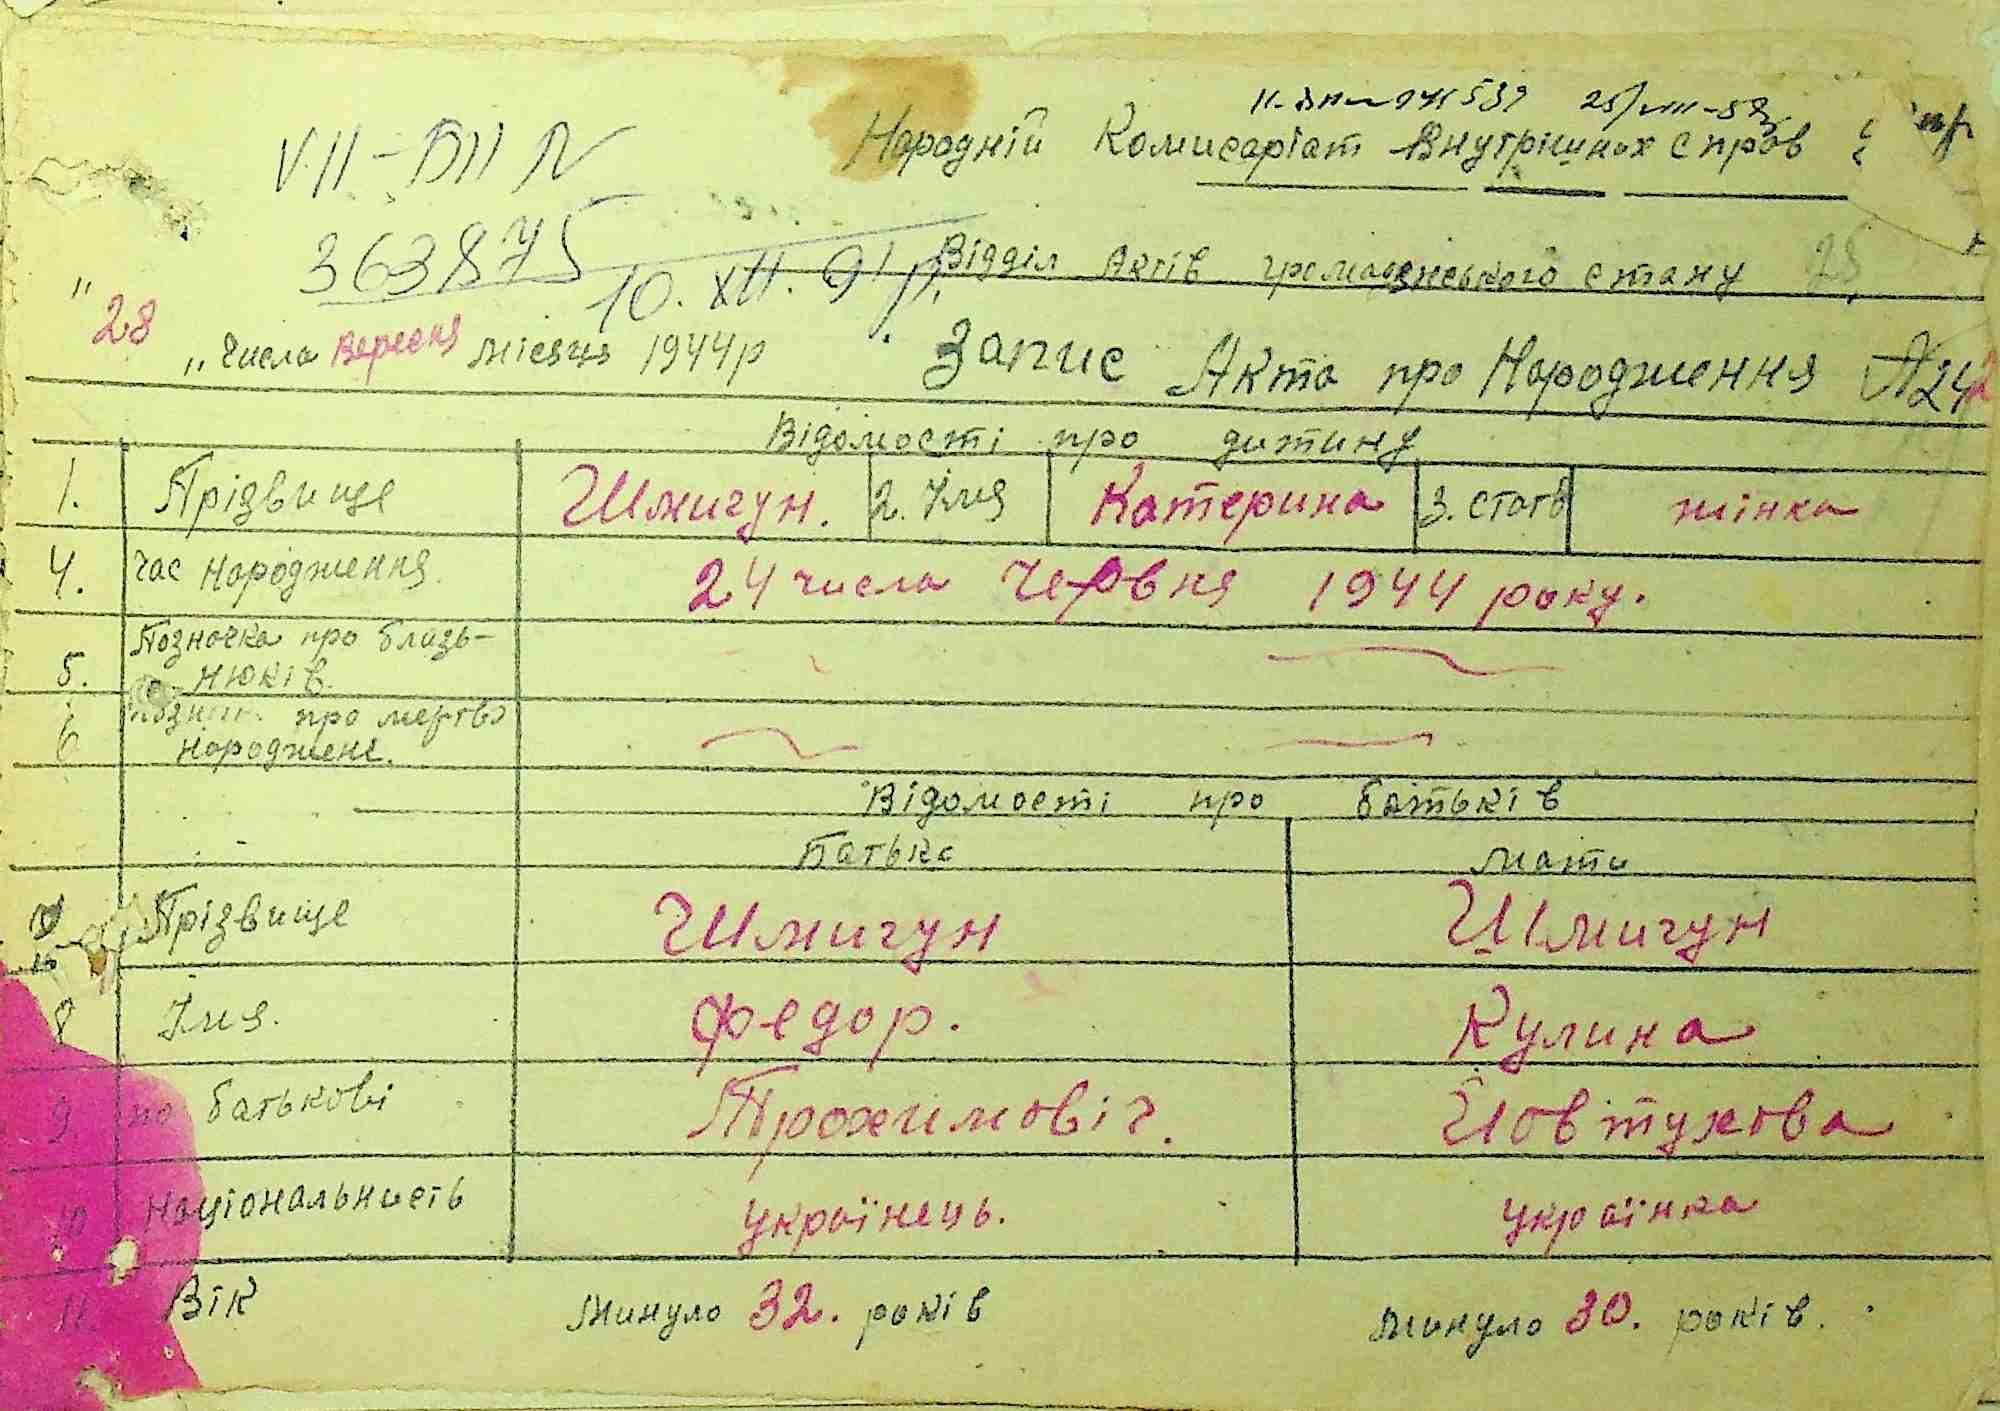 25/VIII-58
Народній Комисаріат Внутрішних справ
VII-БП №
363875
10. XII. 91 р.
Відділ Актів громадянського стану
"28" числа Вересня місяця 1944 р
Запис Акта про Народження № 242
Відомості про дитину
1. Прізвище Шмигун. 2. Імя Катерина 3. стать жінка
4. час Народження. 24 числа Червня 1944 року.
5. Позночка про близь-
нюків.
6 про мертво
народжені.
Відомості про батьків
Батько Мати
Прізвище Шмигун Шмигун
8 Імя. Федор. Кулина
9. по батькові Трохимовіч. Йовтухова
10 Національність українець. українка
11. Вік минуло 32. років минуло 30. років.